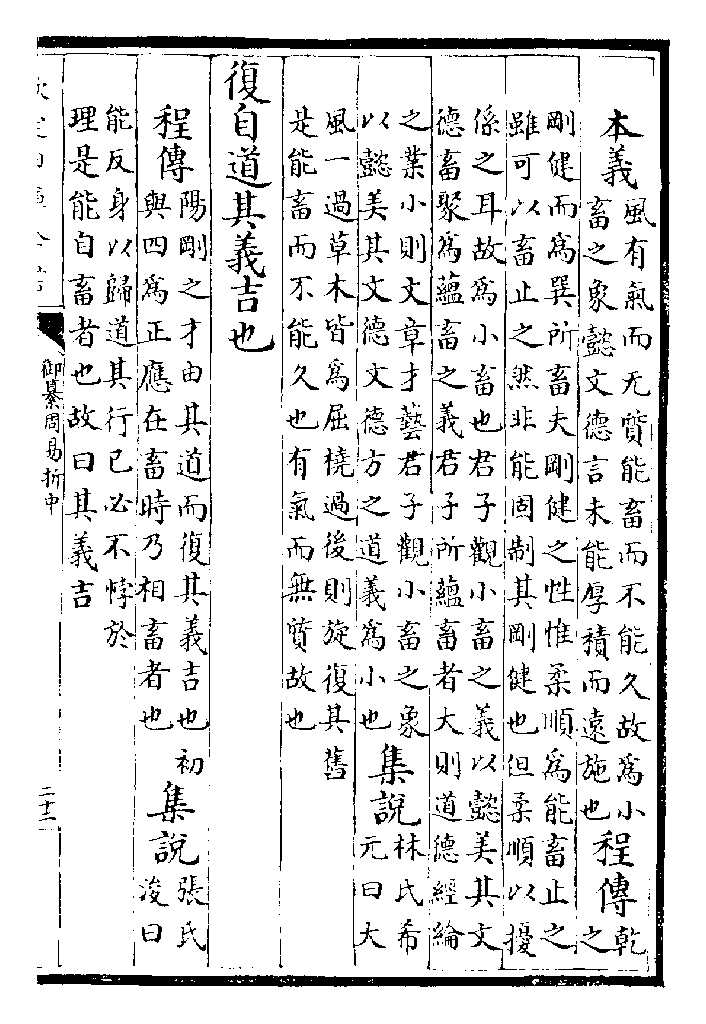 本義
風有氣而无質能畜而不能久故為小
畜之象懿文德言未能厚積而遠施也
程傳
乾
之
剛健而為巽所畜夫剛健之性惟柔順為能畜止之
雖可以畜止之然非能固制其剛健也但柔順以擾
係之耳故為小畜也君子觀小畜之義以懿美其文
德畜聚為蘊畜之義君子所蘊畜者大則道德經綸
之業小則文章才藝君子觀小畜之象
以懿美其文德文德方之道義為小也
集說
林氏希
元曰大
風一過草木皆為屈橈過後則旋復其舊
是能畜而不能久也有氣而無質故也
復自道其義吉也
程傳
陽剛之才由其道而復其義吉也初
與四為正應在畜時乃相畜者也
集說
張氏
浚曰
能反身以歸道其行已必不悖於
理是能自畜者也故曰其義吉
御纂周易折中
二十二